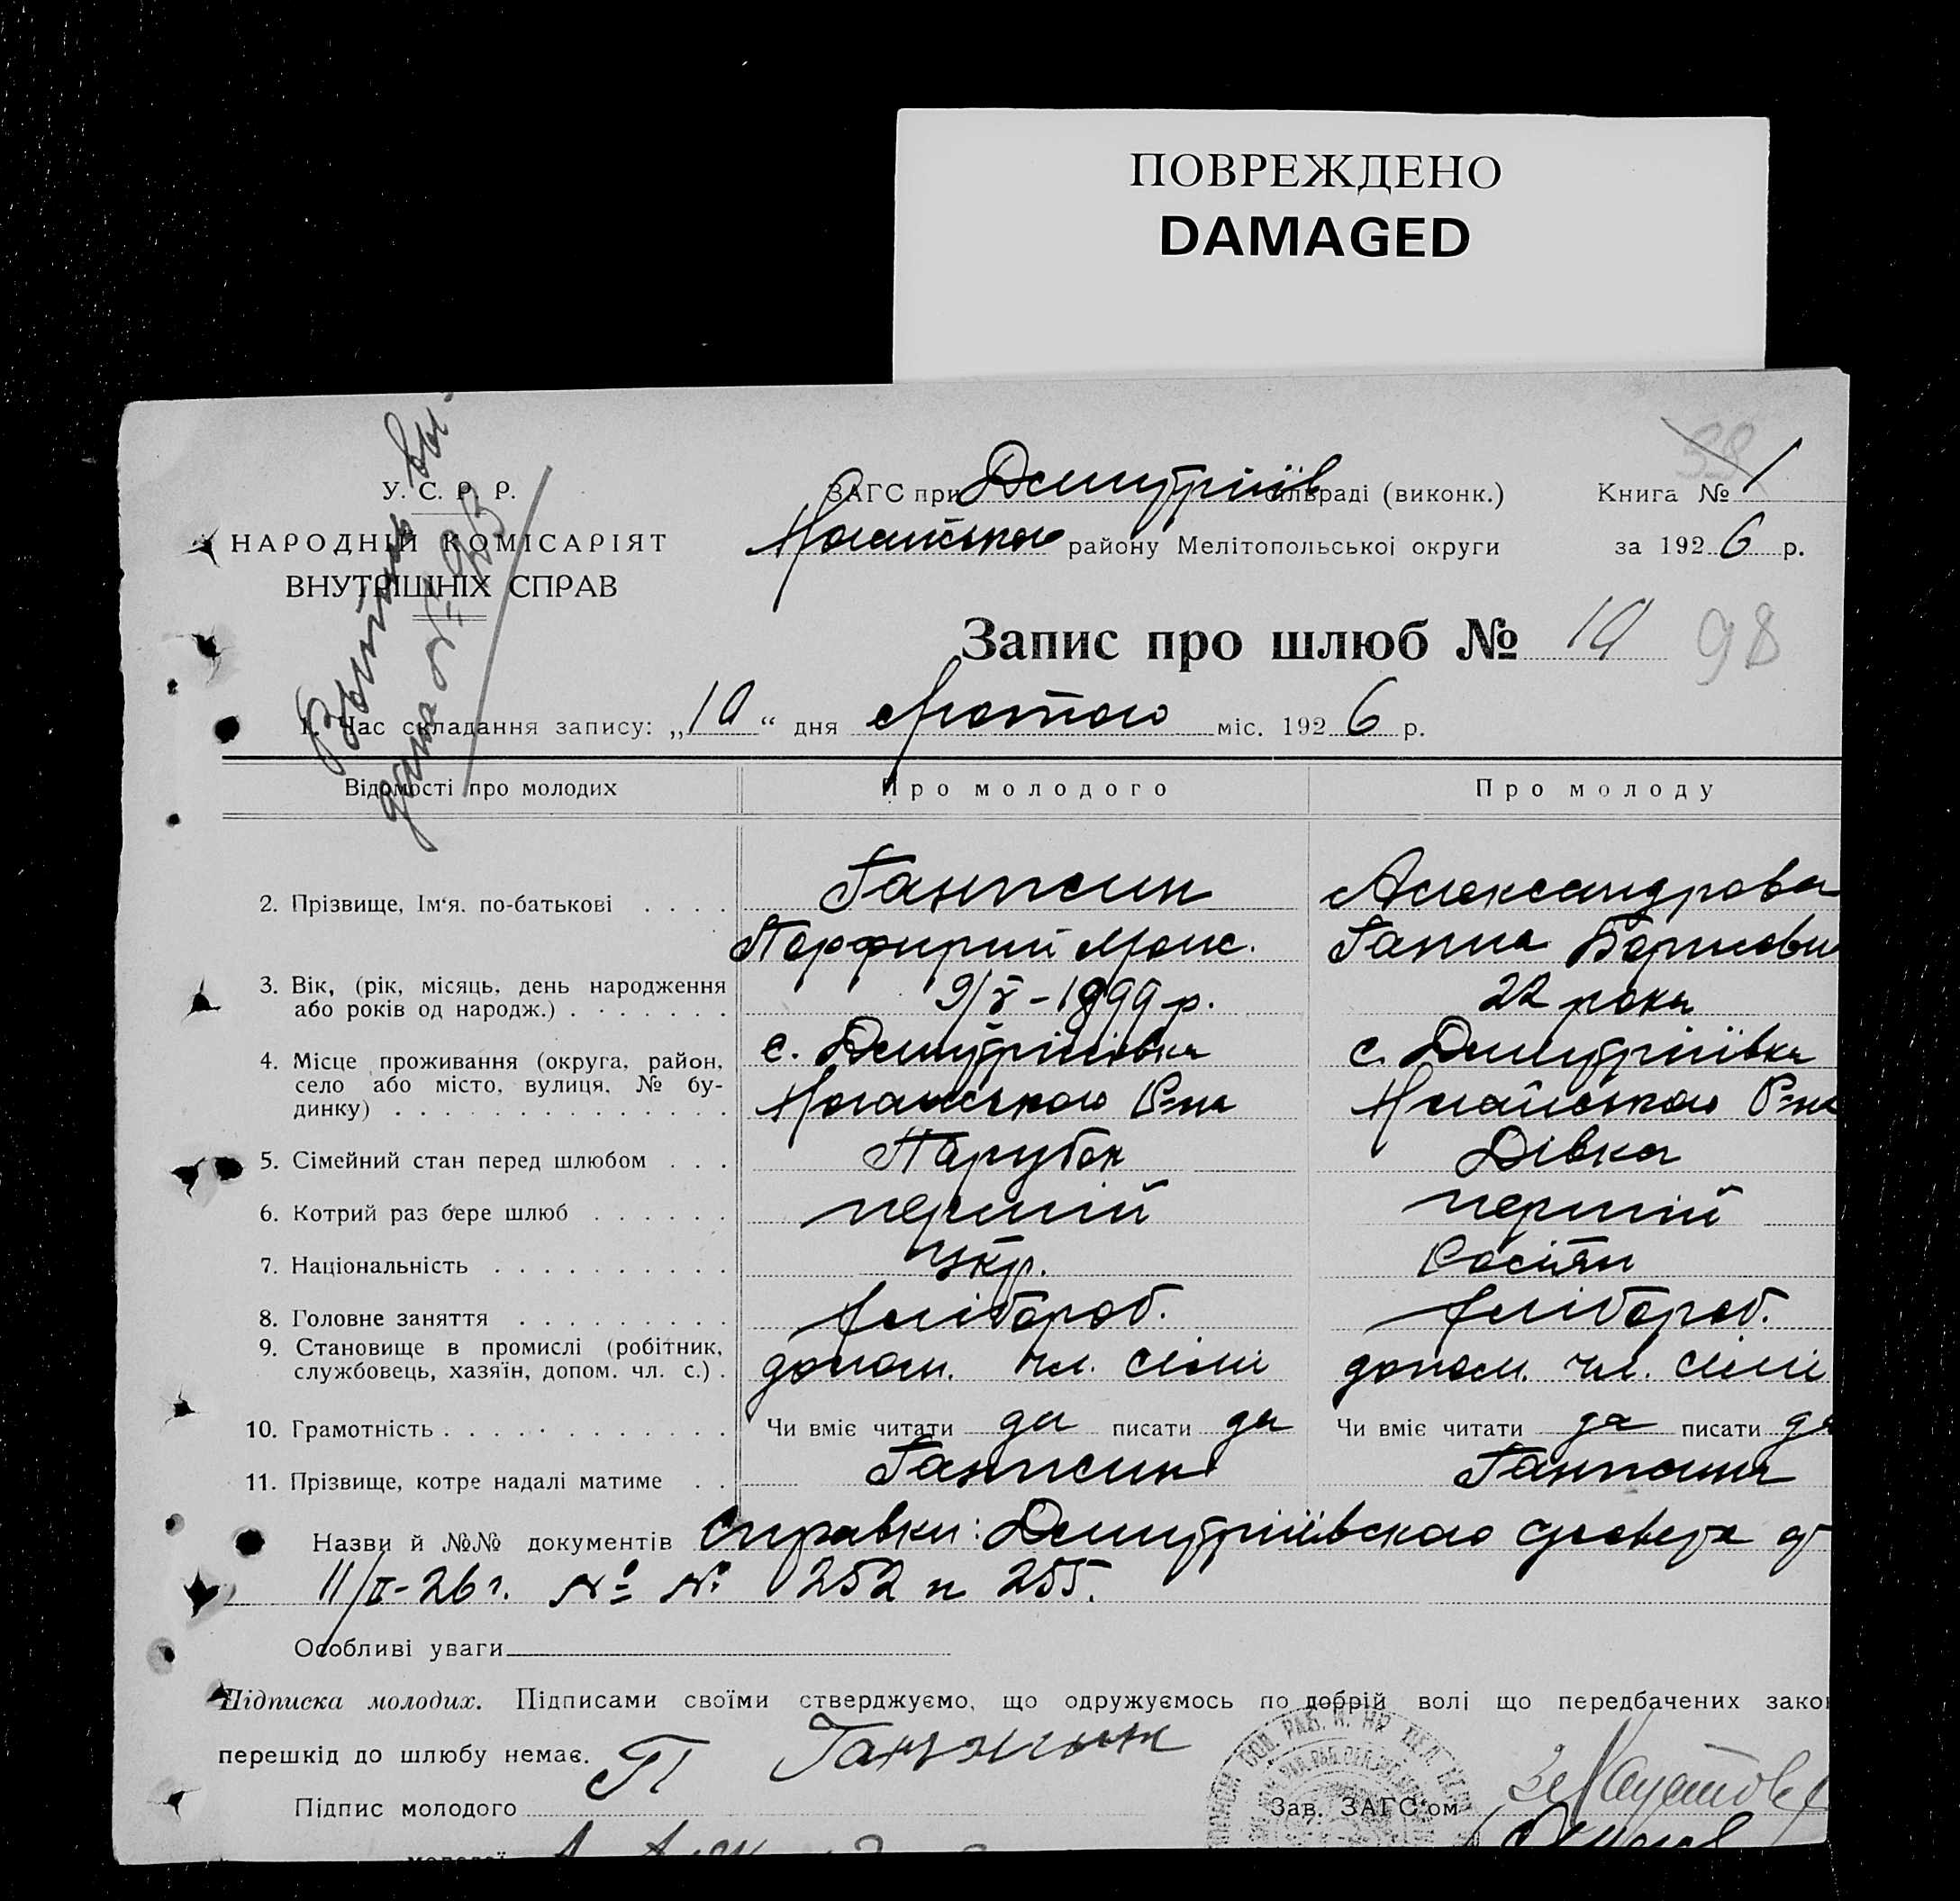 ПОВРЕЖДЕНО
DAMAGED
У. С. Р. Р.
НАРОДНІЙ КОМІСАРІЯТ
ВНУТРІШНІХ СПРАВ
ЗАГС при Дмитріїв сільраді (виконк.)
Книга № 1
Ногайського району Мелітопольської округи
за 1926 р.
Запис про шлюб № 10 98
1. Час складання запису: „10“ дня Лютого міс. 1926 р.
Відомості про молодих
Про молодого
Про молоду
2. Прізвище, Ім‘я, по-батькові . . . .
Ганжин
Порфирий
Александрова
Ганна Борисовн
3. Вік, (рік, місяць, день народження
або років од народж.) . . . . . . .
9/V - 1899 р.
22 роки
4. Місце проживання (округа, район,
село або місто, вулиця, № бу-
динку) . . . . . . . . . . . . . . .
с. Дмитріївка
Ногайського Р-на
с. Дмитріївка
Ногайського Р-на
5. Сімейний стан перед шлюбом . . .
Парубок
Дівка
6. Котрий раз бере шлюб . . . . . .
перший
перший
7. Національність . . . . . . . . . .
Укр.
Росіян
8. Головне заняття . . . . . . . . .
хлібороб.
хлібороб.
9. Становище в промислі (робітник,
службовець, хазяїн, допом. чл. с.) .
допом. чл. сімї
допом. чл. сімї
10. Грамотність . . . . . . . . . . . .
Чи вміє читати да писати да
Чи вміє читати да писати да
11. Прізвище, котре надалі матиме . .
Ганжин
Ганжина
Назви й №№ документів Справки: Дмитріївского
11/II-26 г. № № 252 и 255.
Особливі уваги
Підписка молодих. Підписами своїми стверджуємо, що одружуємось по добрій волі що передбачених закон
перешкід до шлюбу немає.
Підпис молодого П Ганжын
Зав. ЗАГС‘ом